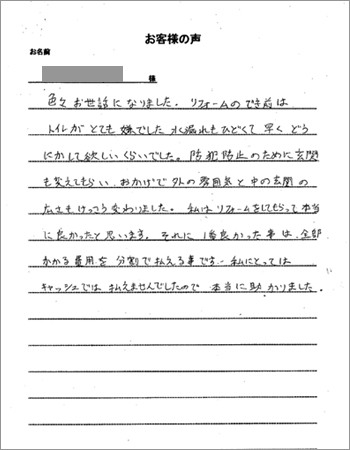 お客様の声
お名前
様
色々お世話になりました。リフォームのでき前は
トイレがとても嫌でした 水漏れもひどくて 早く どう
にかして欲しいくらいでした。防犯防止のために玄関
も変えてもらい、おかげで外の雰囲気と中の玄関の
広さもけっこう変わりました。私はリフォームをしてもらって本当
に良かったと思います。それに1番良かった事は、全部
かかる費用を分割で払える事です。私にとっては
キャッシュでは払えませんでしたので 本当に助かりました。